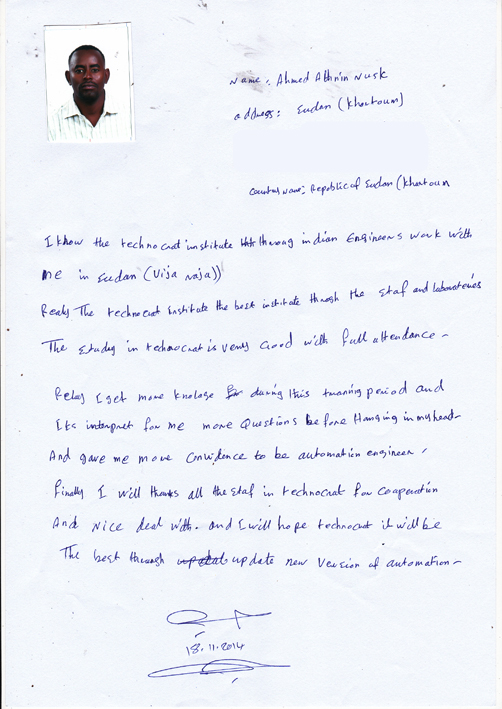 Name: Ahmed Athnin Nusk
address: Sudan (Khartoum)
Country Name: Republic of Sudan (Khartoum
I know the technocrat institute through indian Engineers work with
me in Sudan (Vija raja))
Realy The technocrat institute the best institute throgh the staf and laboratories
The study in technocrat is very Good with full attendance -
Relay I get more knolage during this traning period and
Its interpret for me more Questions before Hanging in my head-
And gave me more Convidence to be automation engineer,
finally I will thanks all the staf in technocrat for cooperation
And Nice deal with. and I will hope technocrat it will be
The best through update new Version of automation-
18.11.2014